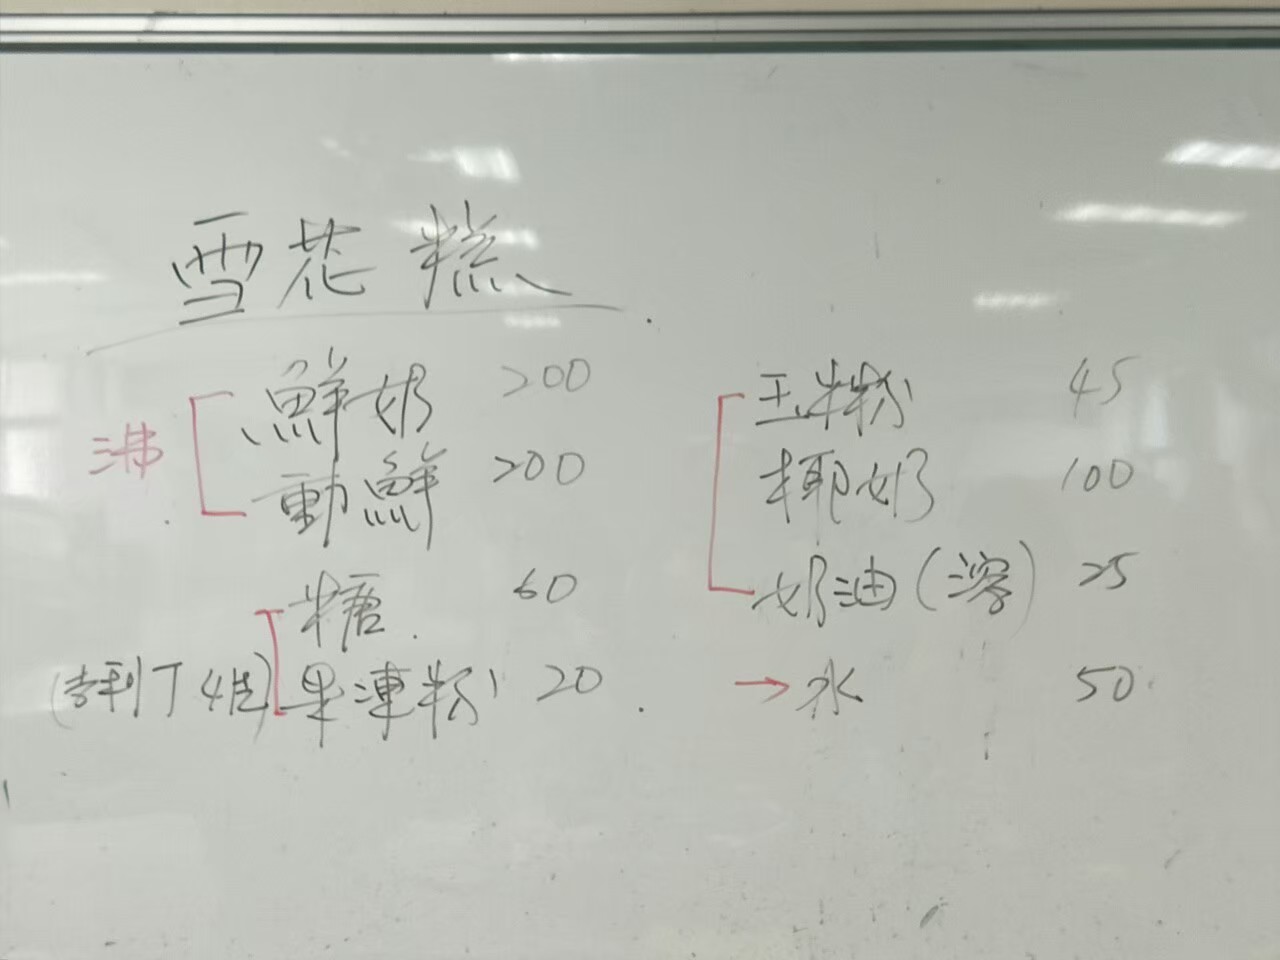 雪花糕
沸 鮮奶 200
動鮮 200
糖 60
(吉利丁4包) 果凍粉 20
玉米粉 45
椰奶 100
奶油(溶) 25
→水 50